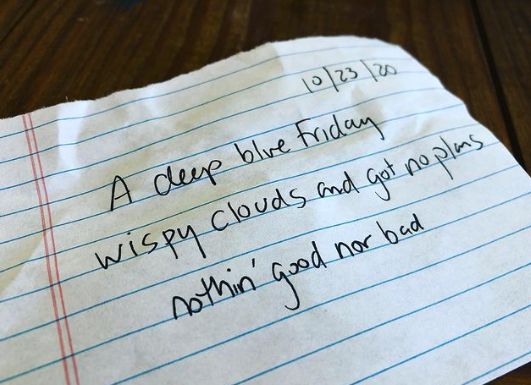 10/23/20
A deep blue Friday
wispy clouds and got no plans
nothin' good nor bad